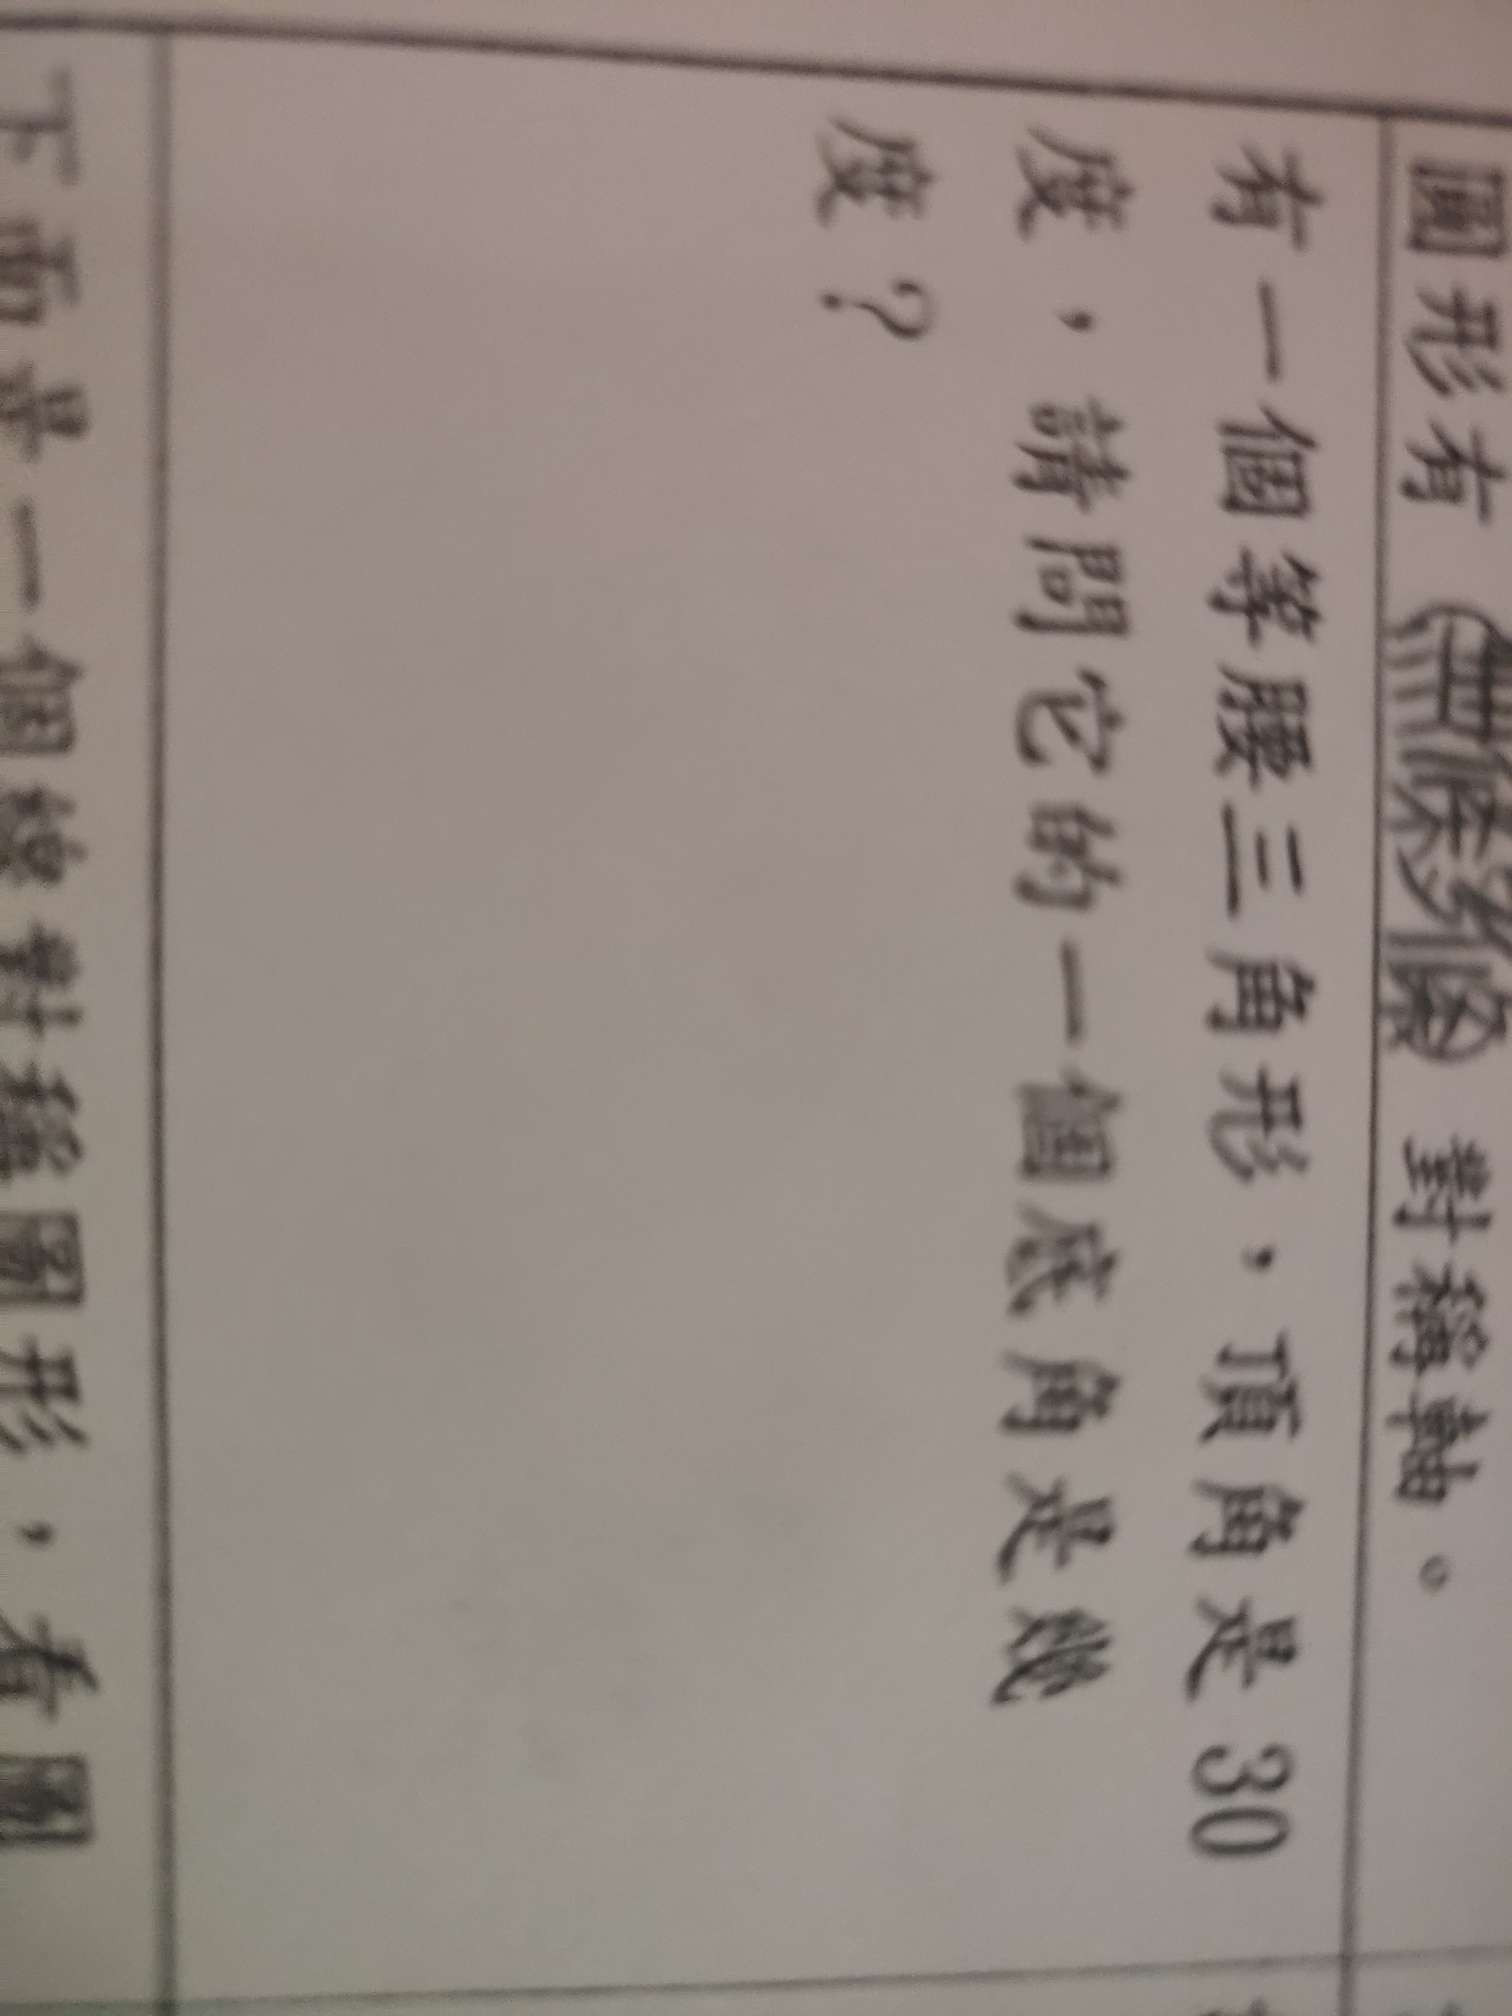 圓形有（無限多條）對稱軸。
有一個等腰三角形，頂角是 30
度，請問它的一個底角是幾
度？
下面是一個線對稱圖形，有圖